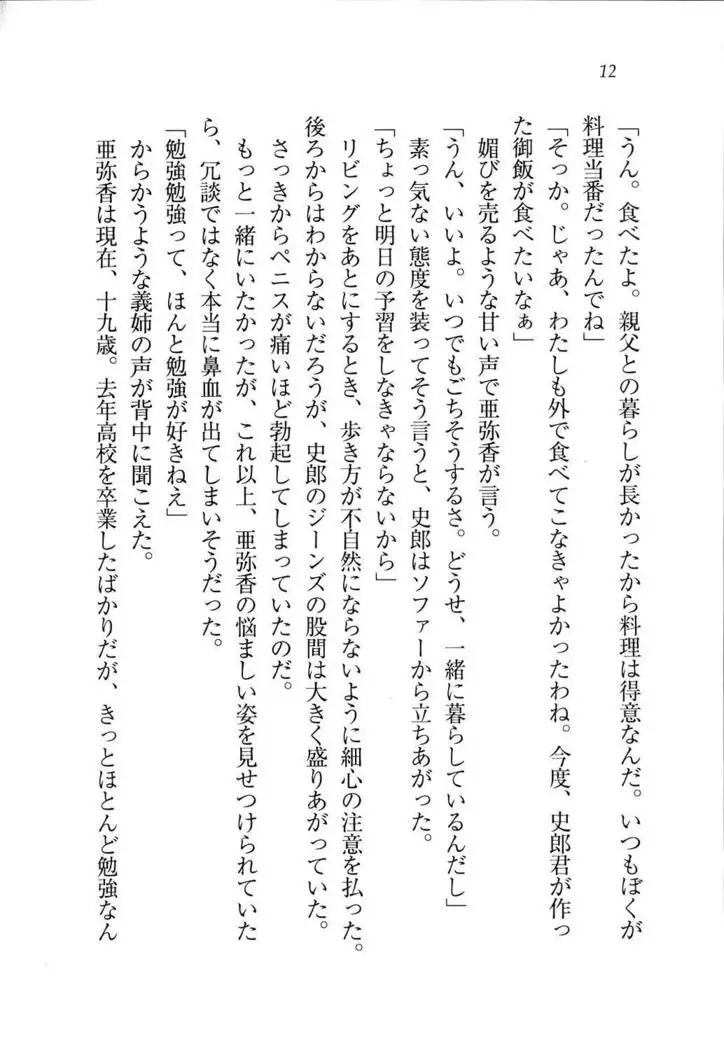 12
「うん。食べたよ。親父との暮らしが長かったから料理は得意なんだ。いつもぼくが
料理当番だったんでね」
「そっか。じゃあ、わたしも外で食べてこなきゃよかったわね。今度、史郎君が作っ
た御飯が食べたいなぁ」
媚びを売るような甘い声で亜弥香が言う。
「うん、いいよ。いつでもごちそうするさ。どうせ、一緒に暮らしているんだし」
素っ気ない態度を装ってそう言うと、史郎はソファーから立ちあがった。
「ちょっと明日の予習をしなきゃならないから」
リビングをあとにするとき、歩き方が不自然にならないように細心の注意を払った。
後ろからはわからないだろうが、史郎のジーンズの股間は大きく盛りあがっていた。
さっきからペニスが痛いほど勃起してしまっていたのだ。
もっと一緒にいたかったが、これ以上、亜弥香の悩ましい姿を見せつけられていた
ら、冗談ではなく本当に鼻血が出てしまいそうだった。
「勉強勉強って、ほんと勉強が好きねえ」
からかうような義姉の声が背中に聞こえた。
亜弥香は現在、十九歳。去年高校を卒業したばかりだが、きっとほとんど勉強なん